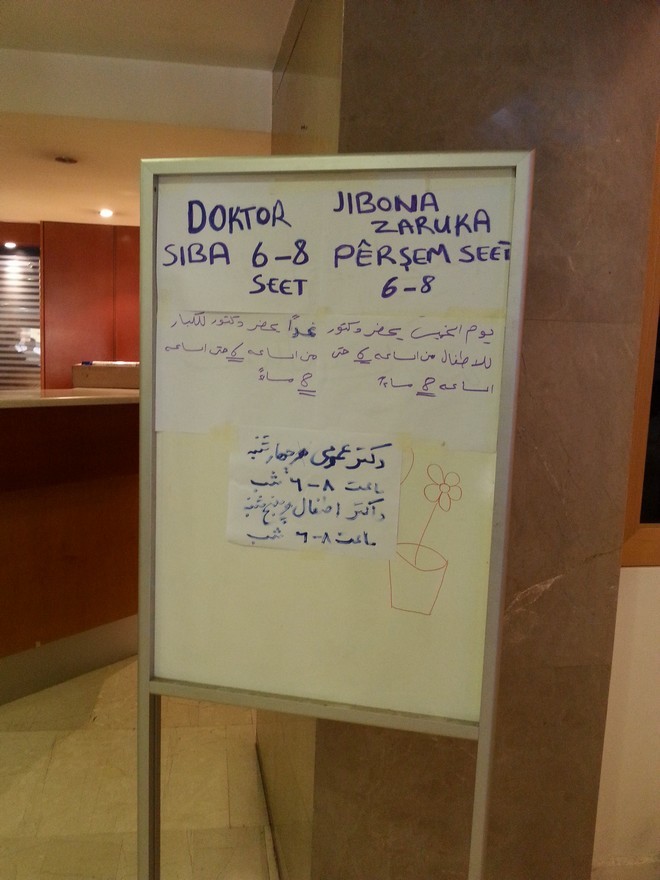 DOKTOR
SIBA 6-8
SEET
JIBONA
ZARUKA
PÊRŞEM SEET
6-8
يوم الخميس يحضر دكتور
للاطفال من الساعه 6 حتى
الساعه 8 مساءً
غداً يحضر دكتور للكبار
من الساعه 6 حتى الساعه
8 مساءً
دکتر عمومی هر چهارشنبه
ساعت ۸-۶ شب
داکتر اطفال پنج شنبه
ساعت ۸-۶ شب